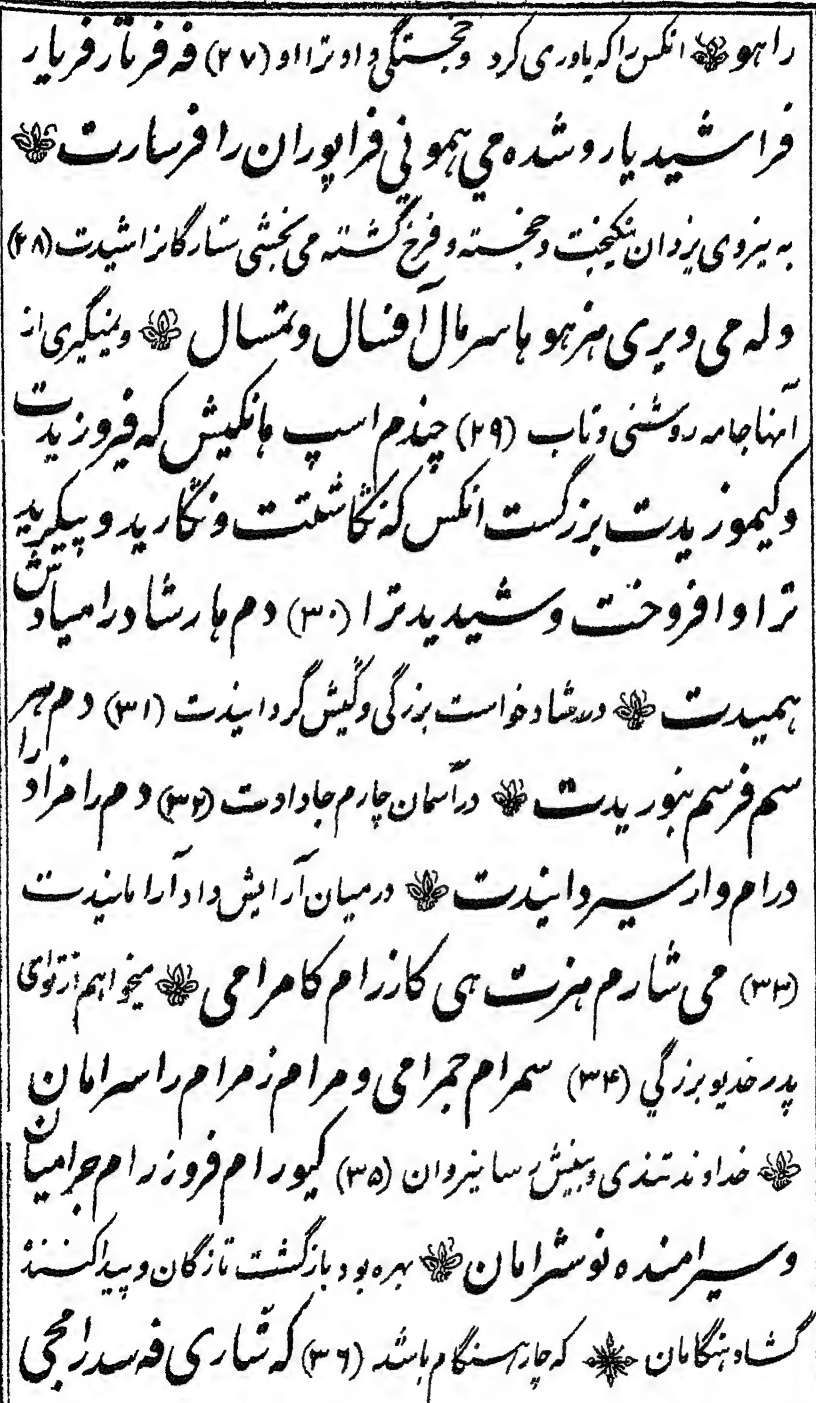 را هو انکس را که یاوری کرد و خجستگی داد ترا او (۲۷) فه فرتار فریار
فرا شیدیار و شده می همونی فراپوران را فرسارت
به نیروی یزدان نیکبخت و خجسته و فرخ گشته می بخشی ستارگانرا شیدت (۲۸)
وله می ویری هنر هو ها سرمال آفسال و تمسال و مینگیری از
آنها جامه روشنی و تاب (۲۹) چندم اسپ هانکیش که فیروزیدت
و کیموزیدت بزرگست انکس که نگاشتت و نگارید و پیکرید
ترا و افروخت و شیدید ترا (۳۰) دم هارشاد رامیادش
همیدت در شاد خواست بزرگی و کیش گردانیدت (۳۱) دم سهر
سم فرسم بنوریدت در آسمان چارم جا دادت (۳۲) دم را مزاد را
درام وارسردانیدت در میان آرایش داد آرامانیدت
(۳۳) می شارم هنرت هی کازرام کامرامی میخواهم از تو ای
پدر خدیو بزرگی (۳۴) سمرام جمرامی و مرام زمرام را سرامان
خداوند تندی و بینش رسا نیروان (۳۵) کیورام فروزرام جرامیان
و سرامنده نوشرامان بهره بود بازگشت تازگان و پیدا کننده
گشاد هنگامان که چار هنگام باشد (۳۶) که شاری فه سدرامجی